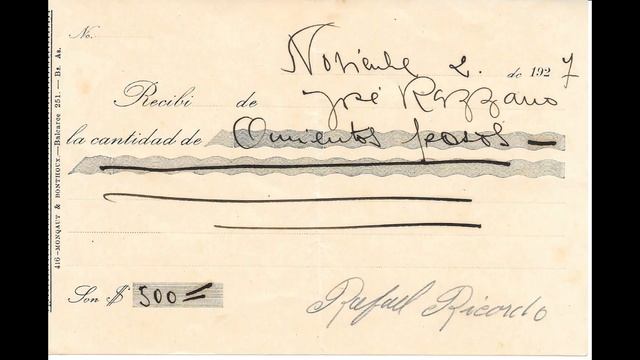 No.
Noviembre 2. de 1927
Recibí de José Razzano
la cantidad de Quinientos pesos —
Son $ 500 =
Rafael Ricordo
416 - MONQAUT & BONTHOUX. — Balcarce 251. — Bs. As.